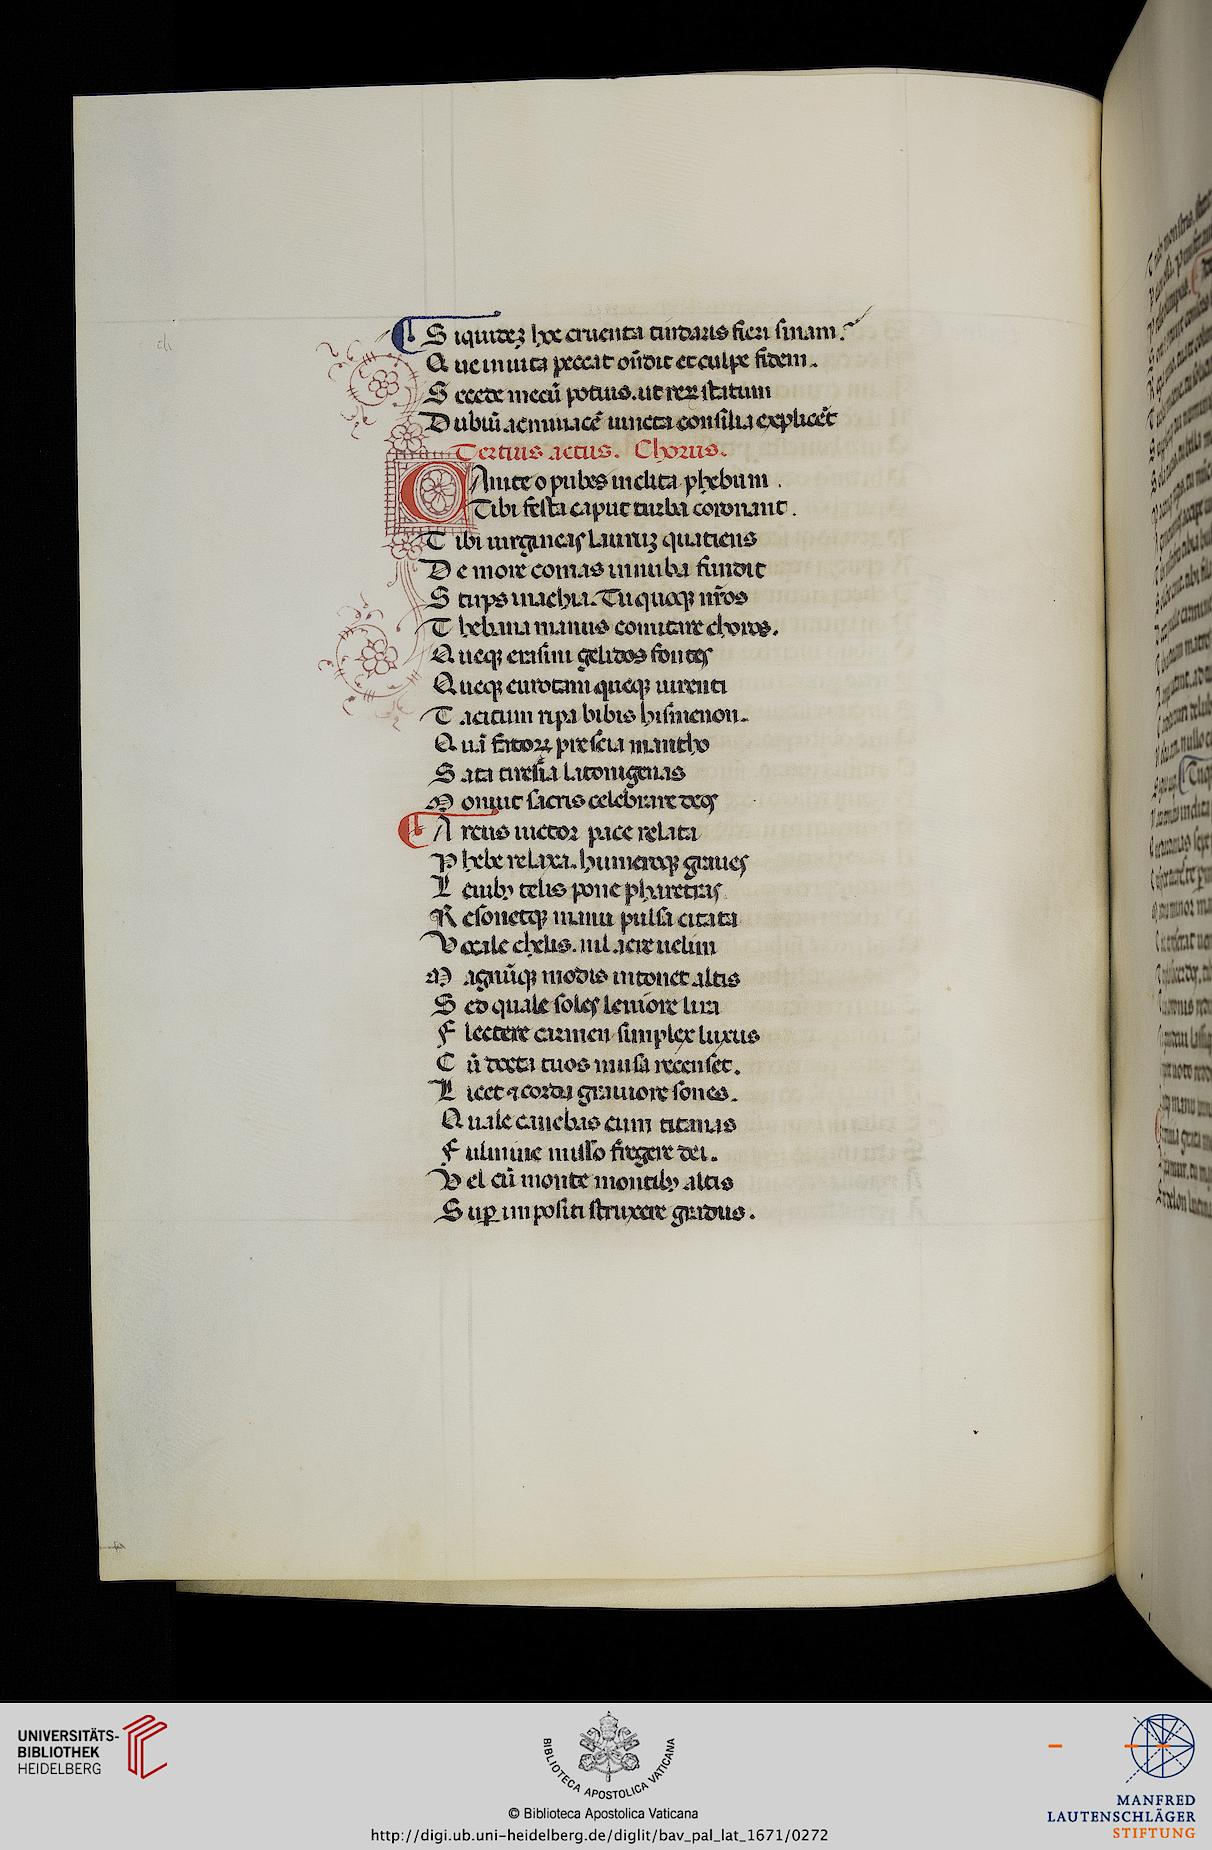 Siquidez hoc cruenta tindaris fieri sinam?
Que inuita peccat oñdit et culpe fidem.
Secede mecũ potius. ut rex statum
Dubiũ ac minacẽ iuncta consilia explicẽt
Tertius actus. Chorus.
Canite o pubes inclita phebum.
Tibi festa caput turba coronant.
Tibi uirgineas lauruz quatiens
De more comas innuba fundit
Stirps inachia. Tu quoqȝ nr̃os
Thebana manus comitare choros.
Queqȝ erasini gelidos fontes
Queqȝ eurotam queqȝ uirenti
Tacitum ripa bibis hismenon.
Quã fatoꝝ prescia mantho
Sata tiresia latonigenas
Monuit sacris celebrare deos
Arcus uictor pace relata
Phebe relaxa. humeroqȝ graues
Leuibȝ telis pone pharetras
Resonetqȝ manu pulsa citata
Vocale chelis. nil acre uelim
Magnũqȝ modis intonet altis
Sed quale soles leuiore lira
Flectere carmen simplex luxus
Cũ docta tuos musa recenset.
Licet ⁊ corda grauiore sones.
Quale canebas cum titanas
Fulmine misso fregere dei.
Vel cũ monte montibȝ altis
Suꝑ impositi struxere gradus.
UNIVERSITÄTS-
BIBLIOTHEK
HEIDELBERG
BIBLIOTECA APOSTOLICA VATICANA
© Biblioteca Apostolica Vaticana
http://digi.ub.uni-heidelberg.de/diglit/bav_pal_lat_1671/0272
MANFRED
LAUTENSCHLÄGER
STIFTUNG